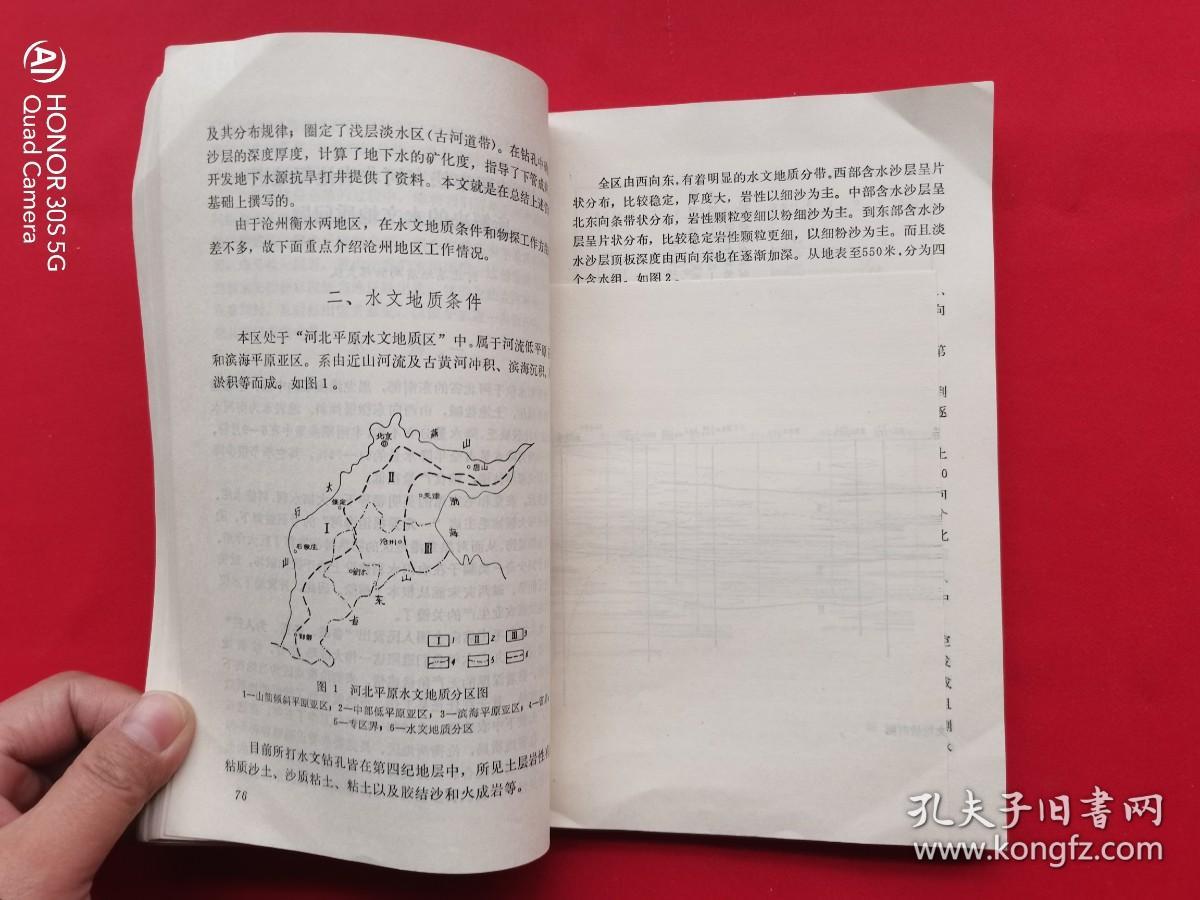 HONOR 30S 5G
Quad Camera
及其分布规律；圈定了浅层淡水区（古河道带）。在钻孔中
沙层的深度厚度，计算了地下水的矿化度，指导了下管成
开发地下水源抗旱打井提供了资料。本文就是在总结上述
基础上撰写的。
由于沧州衡水两地区，在水文地质条件和物探工作方法
差不多，故下面重点介绍沧州地区工作情况。
二、水文地质条件
本区处于“河北平原水文地质区”中。属于河流低平原
和滨海平原亚区。系由近山河流及古黄河冲积、滨海沉积，
淤积等而成。如图1。
北京
燕
山
唐山
太
II
保定
天津
渤
行
I
海
石家庄
沧州
III
山
衡水
山
东
省
邯郸
I 1 II 2 III 3
4 5 6
图1 河北平原水文地质分区图
1—山前倾斜平原亚区；2—中部低平原亚区；3—滨海平原亚区；4—省界
5—专区界；6—水文地质分区
目前所打水文钻孔皆在第四纪地层中，所见土层岩性
粘质沙土、沙质粘土、粘土以及胶结沙和火成岩等。
76
全区由西向东，有着明显的水文地质分带。西部含水沙层呈片
状分布，比较稳定，厚度大，岩性以细沙为主。中部含水沙层呈
北东向条带状分布，岩性颗粒变细以粉细沙为主。到东部含水沙
层呈片状分布，比较稳定岩性颗粒更细，以细粉沙为主。而且淡
水沙层顶板深度由西向东也在逐渐加深。从地表至550米，分为四
个含水组。如图2。
向
第
到
逐
上
0
向
个
北
中
定
成
或
组
测
水
孔夫子旧书网
www.kongfz.com